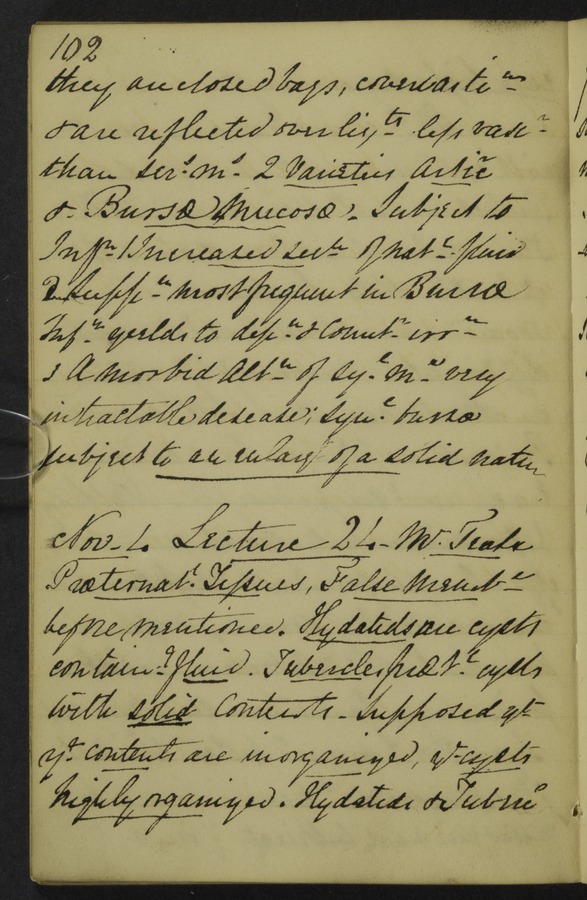 102
they are closed bags, cover arti^ns
& are reflected over lig^ts less vasc^r
than ser^s m^s 2 Varieties Artic^r
& Bursæ Mucosæ. Subject to
Inf^n 1 Increased sec^n of nat^l fluid
2 Supp^n most frequent in Bursæ
Inf^n yields to dep^n & Count^r irr^n
3 A morbid Alt^n of sy^l m^n very
intractable desease; syn^l bursæ
subject to an enlarg^t of a solid nature
Nov. 4 Lecture 24 - M^r. Teale
Præternat^l. Tissues, False Memb^n
before mentioned. Hydatids are cysts
contain^g fluid. Tubercles præt^l cysts
with solid Contents - Supposed y^t
y^r contents are inorganized, y^e cysts
highly organized. Hydatids & Tuberc^s